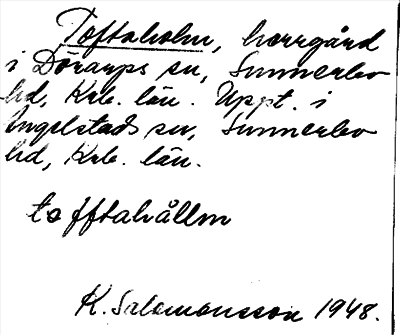 Toftaholm, herrgård
i Dörarps sn, Sunnerbo
hd, Krb. län. Uppt. i
Angelstads sn, Sunnerbo
hd, Krb. län.
tofftahållm
K. Salomonsson 1948.